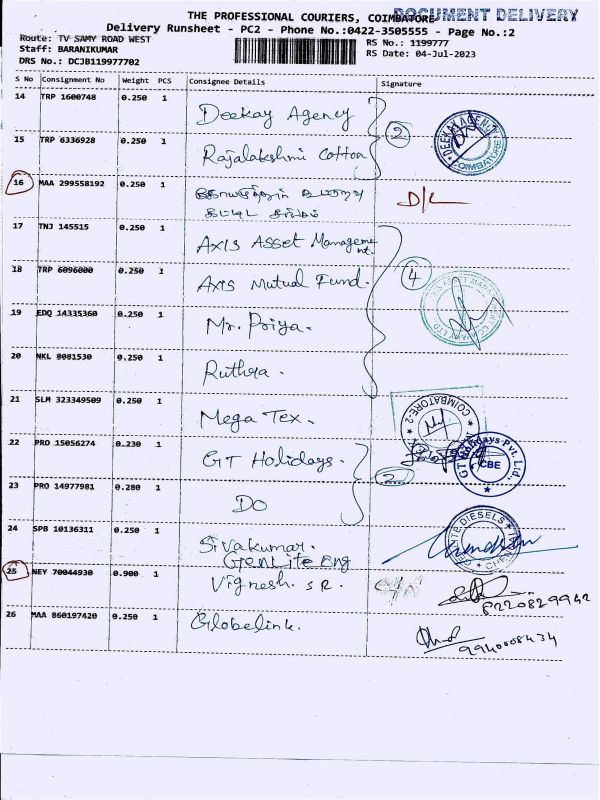 THE PROFESSIONAL COURIERS, COIMBATORE
DOCUMENT DELIVERY
Delivery Runsheet - PC2 - Phone No.:0422-3505555 - Page No.:2
Route: TV SAMY ROAD WEST
RS No.: 1199777
Staff: BARANIKUMAR
RS Date: 04-Jul-2023
DRS No.: DCJB119977702
S No Consignment No Weight PCS Consignee Details Signature
14 TRP 1600748 0.250 1 Deekay Agency
2
DEEKAY AGENCY COIMBATORE
15 TRP 6336928 0.250 1 Rajalakshmi Cotton
16 MAA 299558192 0.250 1 D/L
17 TNJ 145515 0.250 1 Axis Asset Management.
18 TRP 6096000 0.250 1 Axis Mutual Fund.
4
19 EDQ 14335360 0.250 1 Mr. Priya.
20 NKL 8081530 0.250 1 Ruthra.
21 SLM 323349509 0.250 1 Mega Tex.
COIMBATORE-2
22 PRO 15056274 0.230 1 GT Holidays.
GT Holidays Pvt. Ltd.,
CBE
23 PRO 14977981 0.280 1 DO
24 SPB 10136311 0.250 1 Sivakumar.
GenLite Eng
DIESELS
25 NEY 70044930 0.900 1 Vignesh. S R.
8220829942
26 MAA 860197420 0.250 1 Globelink.
9940008434